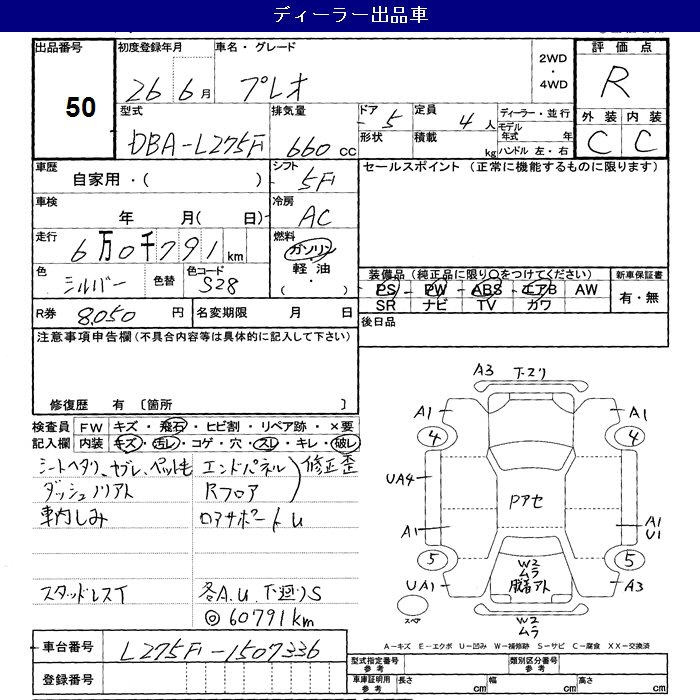 ディーラー出品車
出品番号 50
初度登録年月 26 6月
車名・グレード プレオ
2WD・4WD
評価点 R
型式 DBA-L275F
排気量 660 cc
ドア 5
形状
定員 4人
積載 kg
ディーラー・並行
モデル年式 年
ハンドル 左・右
外装 内装
C C
車歴 自家用・( )
シフト 5F
セールスポイント (正常に機能するものに限ります)
車検 年 月( 日)
冷房 AC
走行 6万0千791km
燃料 ガソリン 軽油 ( ・ )
色 シルバー 色替 色コード S28
装備品(純正品に限り○をつけてください)
新車保証書
PS PW ABS エアB AW
有・無
SR ナビ TV カワ
R券 8,050 円 名変期限 月 日
後日品
注意事項申告欄(不具合内容等は具体的に記入して下さい)
修復歴 有 〔箇所 〕
検査員記入欄
FW キズ・飛石・ヒビ割・リペア跡・×要
内装 キズ・汚レ・コゲ・穴・スレ・キレ・破レ
シートヘタリ、ヤブレ、ペットも エンドパネル 修正歪
ダッシュノリアト Rフロア
車内しみ ロアサポートU
スタッドレスT 各A.U.下廻りS
◎60791km
A3 下マワリ
A1 A1
4 4
UA4
Pアセ
A1 A1
U1
5 5
W2
ムラ
UA1 脱着アト A3
スペア
W2
ムラ
A-キズ E-エクボ U-凹み W-補修跡 S-サビ C-腐食 XX-交換済
車台番号 L275F-1507336
登録番号
型式指定番号 参考 類別区分番号 参考
車庫証明用 参考 長さ cm 幅 cm 高さ cm